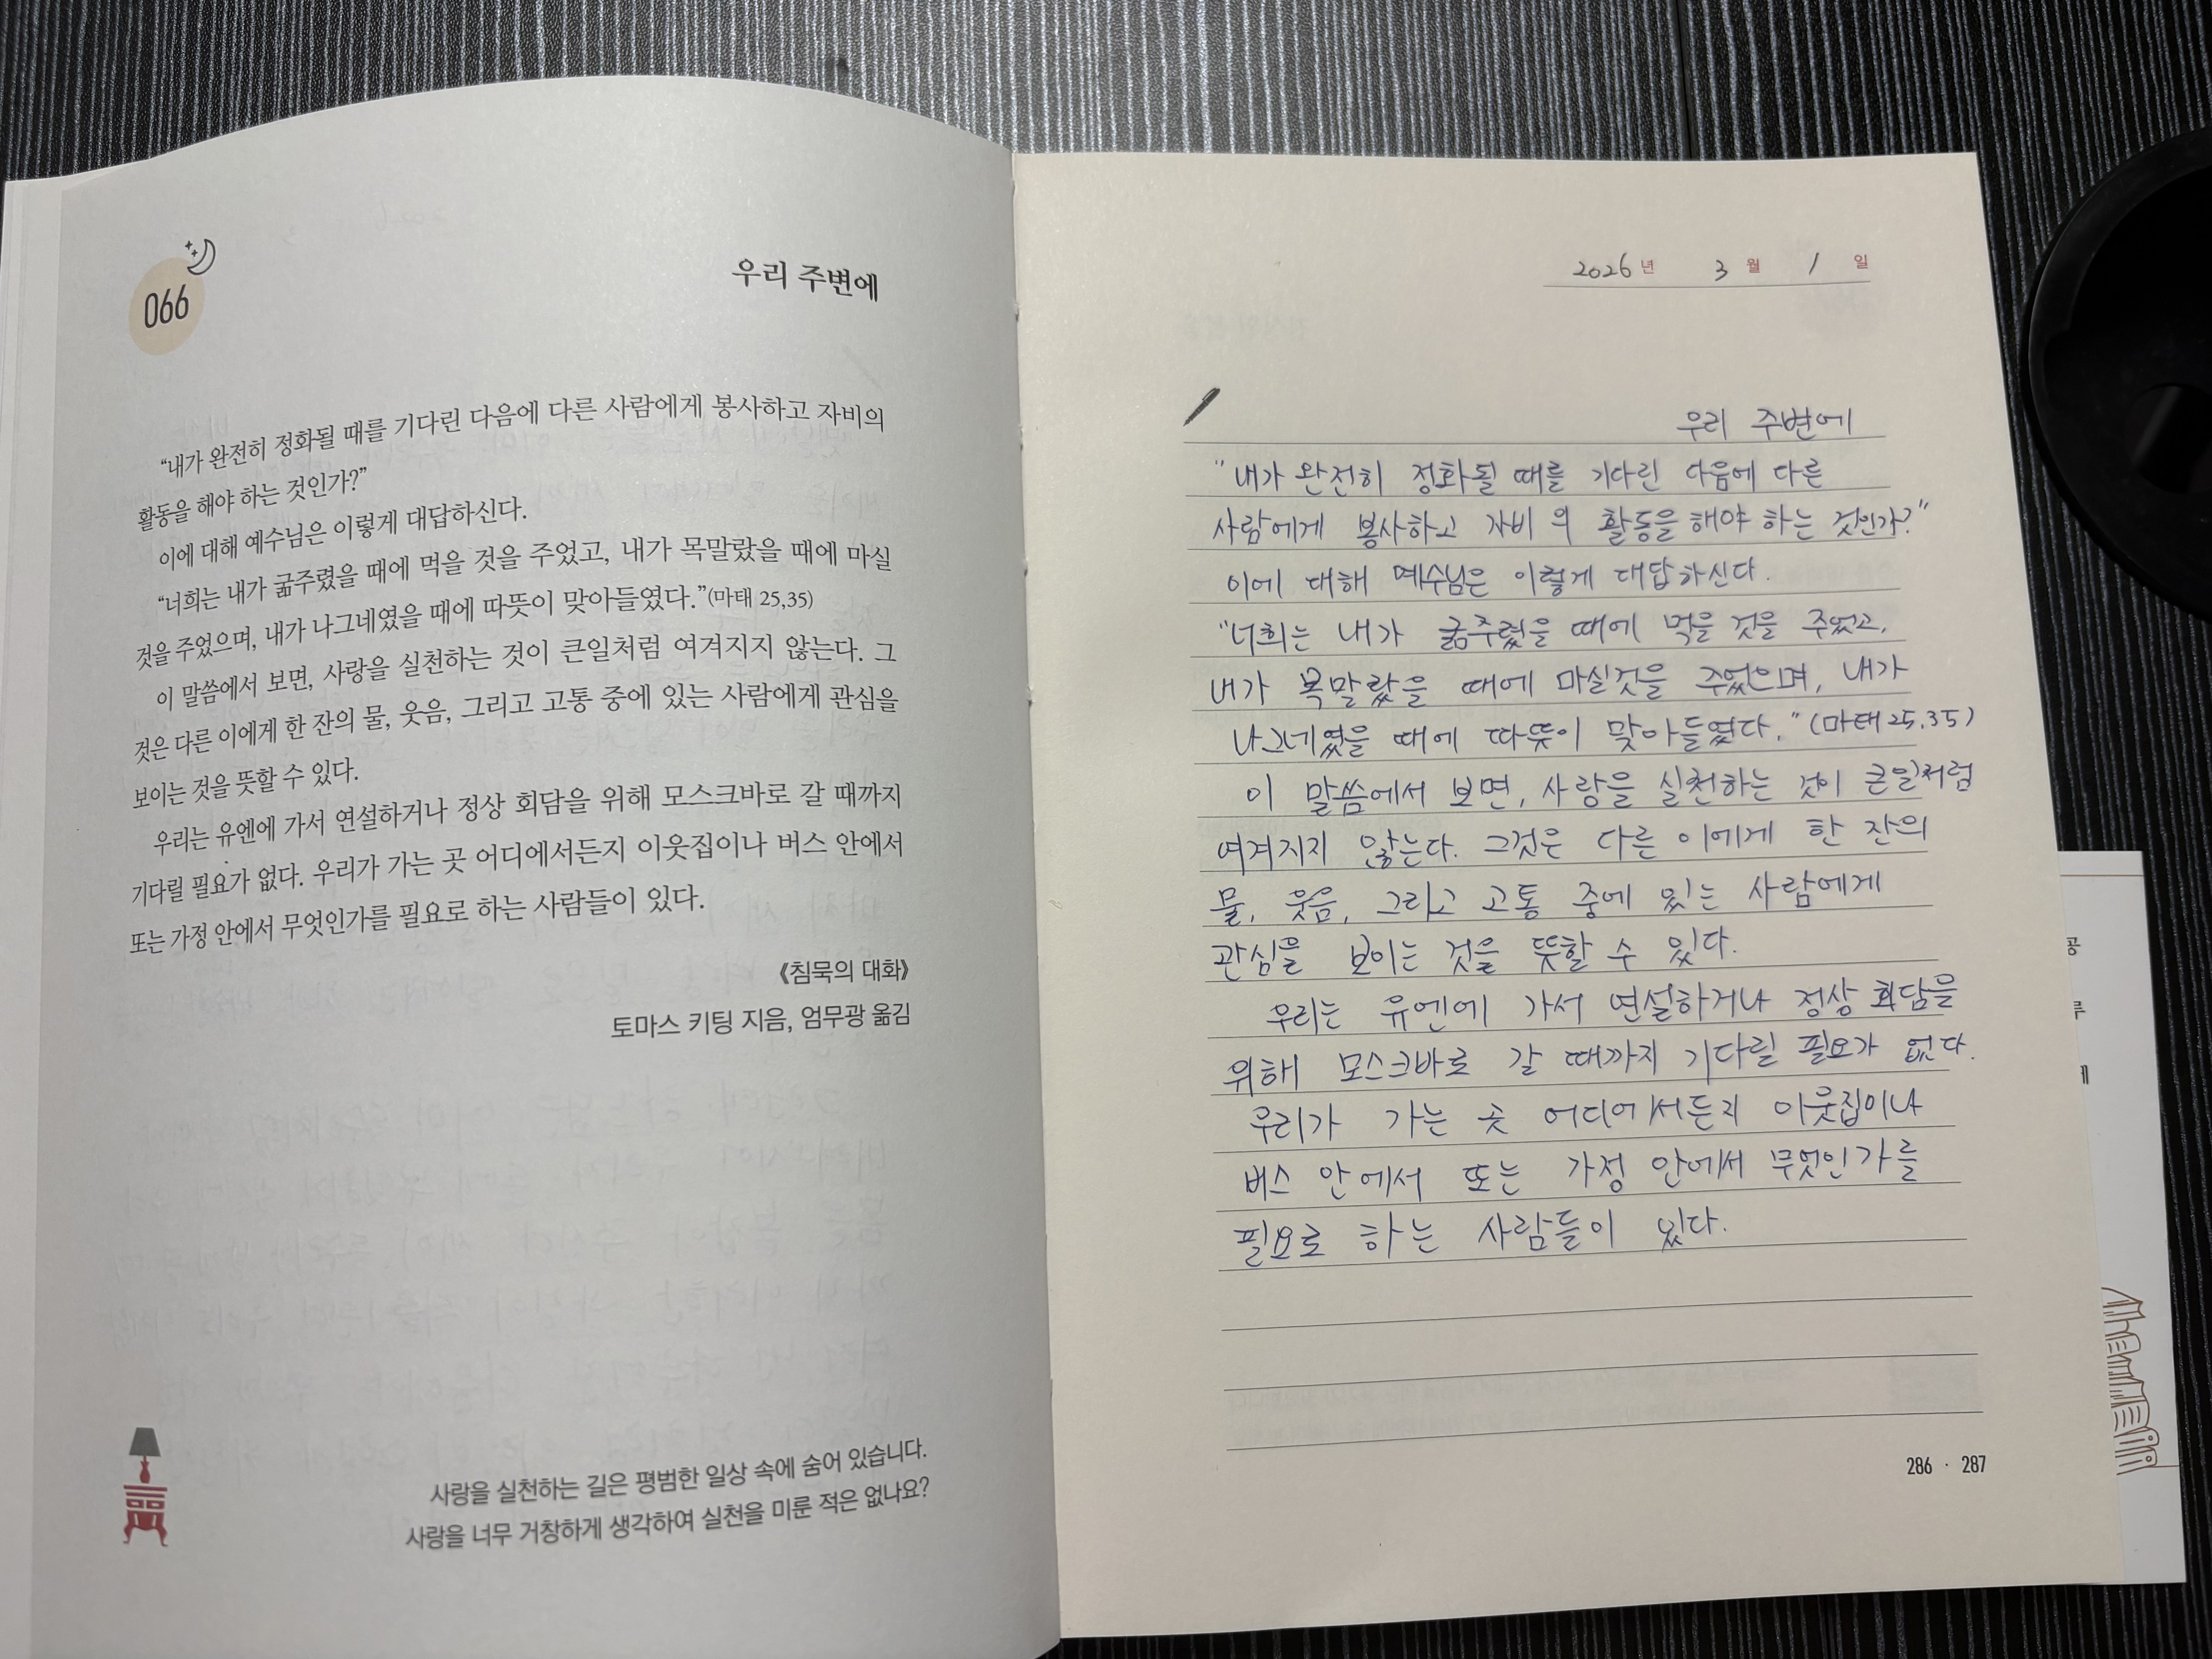 066
우리 주변에
“내가 완전히 정화될 때를 기다린 다음에 다른 사람에게 봉사하고 자비의
활동을 해야 하는 것인가?”
이에 대해 예수님은 이렇게 대답하신다.
“너희는 내가 굶주렸을 때에 먹을 것을 주었고, 내가 목말랐을 때에 마실
것을 주었으며, 내가 나그네였을 때에 따뜻이 맞아들였다.”(마태 25,35)
이 말씀에서 보면, 사랑을 실천하는 것이 큰일처럼 여겨지지 않는다. 그
것은 다른 이에게 한 잔의 물, 웃음, 그리고 고통 중에 있는 사람에게 관심을
보이는 것을 뜻할 수 있다.
우리는 유엔에 가서 연설하거나 정상 회담을 위해 모스크바로 갈 때까지
기다릴 필요가 없다. 우리가 가는 곳 어디에서든지 이웃집이나 버스 안에서
또는 가정 안에서 무엇인가를 필요로 하는 사람들이 있다.
《침묵의 대화》
토마스 키팅 지음, 엄무광 옮김
사랑을 실천하는 길은 평범한 일상 속에 숨어 있습니다.
사랑을 너무 거창하게 생각하여 실천을 미룬 적은 없나요?
2026년 3월 1일
우리 주변에
"내가 완전히 정화될 때를 기다린 다음에 다른
사람에게 봉사하고 자비의 활동을 해야 하는 것인가?"
이에 대해 예수님은 이렇게 대답하신다.
"너희는 내가 굶주렸을 때에 먹을 것을 주었고,
내가 목말랐을 때에 마실것을 주었으며, 내가
나그네였을 때에 따뜻이 맞아들였다." (마태 25.35)
이 말씀에서 보면, 사랑을 실천하는 것이 큰일처럼
여겨지지 않는다. 그것은 다른 이에게 한 잔의
물, 웃음, 그리고 고통 중에 있는 사람에게
관심을 보이는 것을 뜻할 수 있다.
우리는 유엔에 가서 연설하거나 정상 회담을
위해 모스크바로 갈 때까지 기다릴 필요가 없다.
우리가 가는 곳 어디에서든지 이웃집이나
버스 안에서 또는 가정 안에서 무엇인가를
필요로 하는 사람들이 있다.
286 · 287